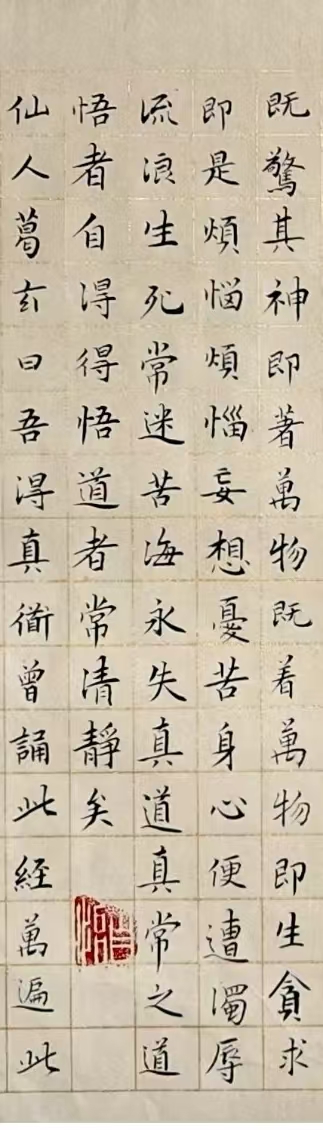 既驚其神即著萬物既着萬物即生貪求
即是煩惱煩惱妄想憂苦身心便遭濁辱
流浪生死常迷苦海永失真道真常之道
悟者自得得悟道者常清靜矣
仙人葛玄曰吾得真衜曾誦此經萬遍此